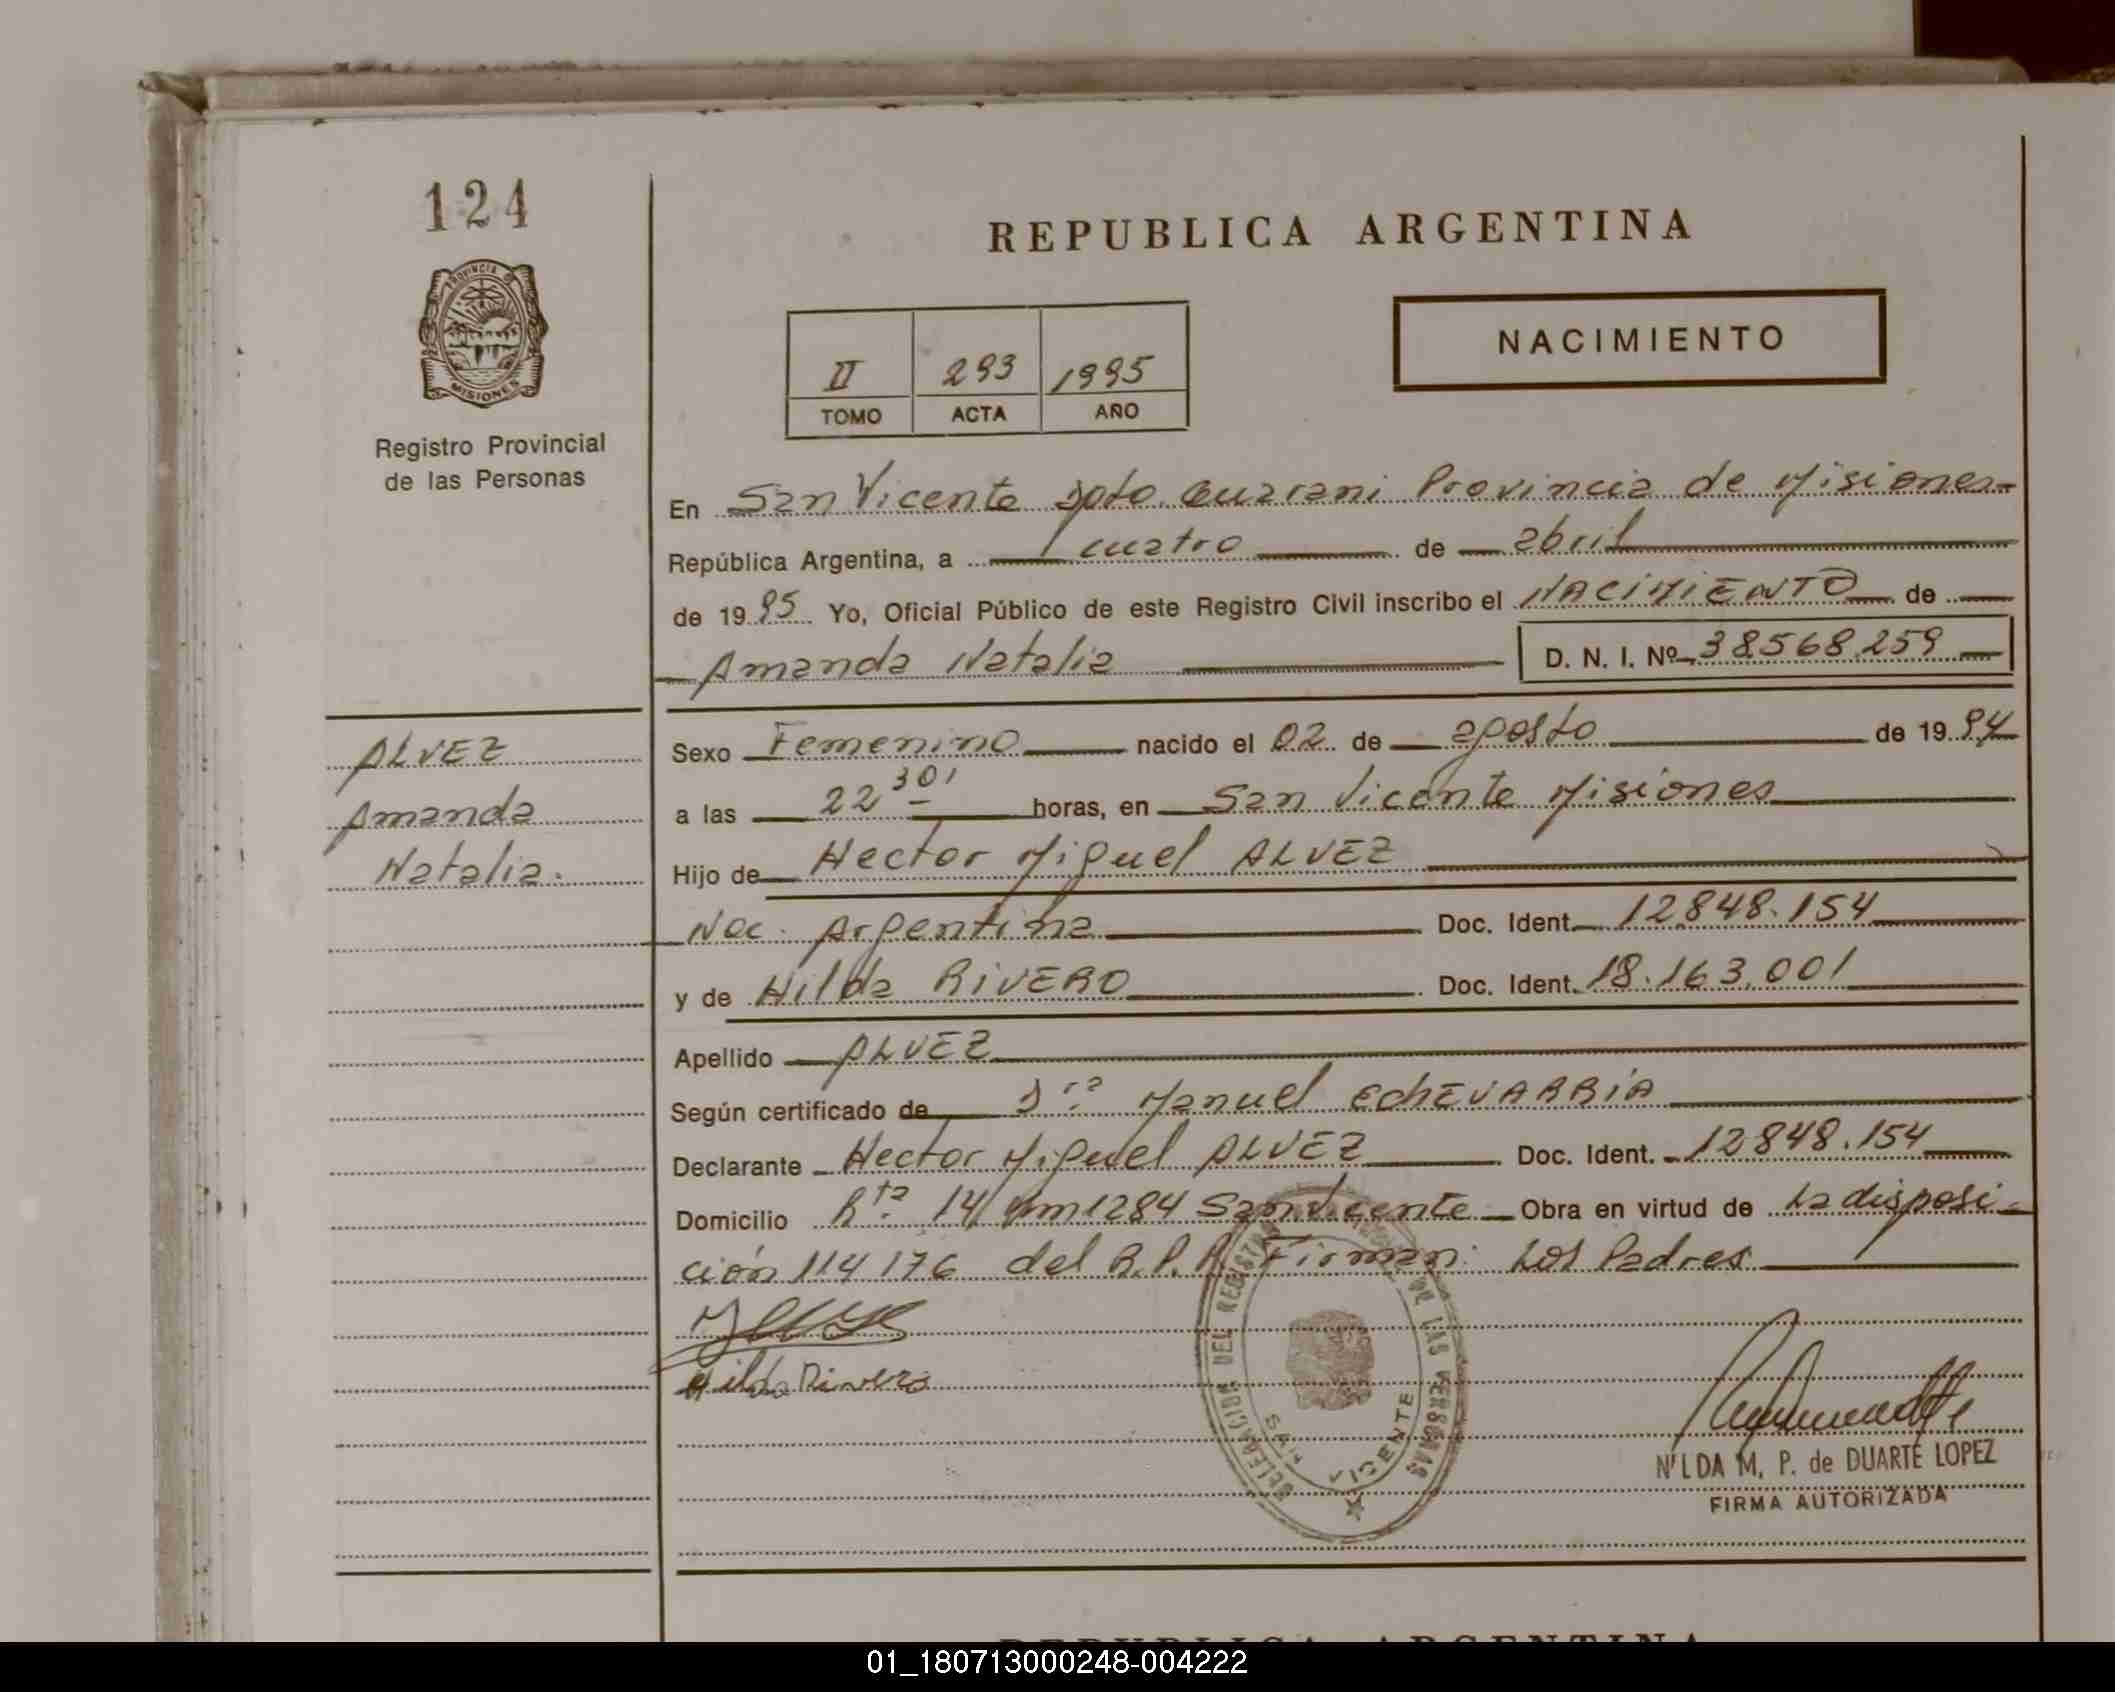 124
PROVINCIA DE
MISIONES
Registro Provincial
de las Personas
REPUBLICA ARGENTINA
II 293 1995
TOMO ACTA AÑO
NACIMIENTO
En San Vicente Dpto. Guarani Provincia de Misiones
República Argentina, a cuatro de abril
de 1995 Yo, Oficial Público de este Registro Civil inscribo el NACIMIENTO de
Amanda Natalia D. N. I. Nº 38568.259
ALVEZ
Amanda
Natalia.
Sexo Femenino nacido el 02 de agosto de 1994
a las 22 30' horas, en San Vicente Misiones
Hijo de Hector Miguel ALVEZ
Nac. Argentina Doc. Ident. 12848.154
y de Hilda RIVERO Doc. Ident. 18.163.001
Apellido ALVEZ
Según certificado de Manuel EChEVARRIA
Declarante Hector Miguel ALVEZ Doc. Ident. 12848.154
Domicilio Rta. 14 Km 1284 San Vicente Obra en virtud de La disposi-
ción 114 176 del R.P.P. Firman: Los Padres
Hilda Rivero
DELEGACION DEL REGISTRO DE LAS PERSONAS
SAN VICENTE
NILDA M. P. de DUARTE LOPEZ
FIRMA AUTORIZADA
REPUBLICA ARGENTINA
01_180713000248-004222